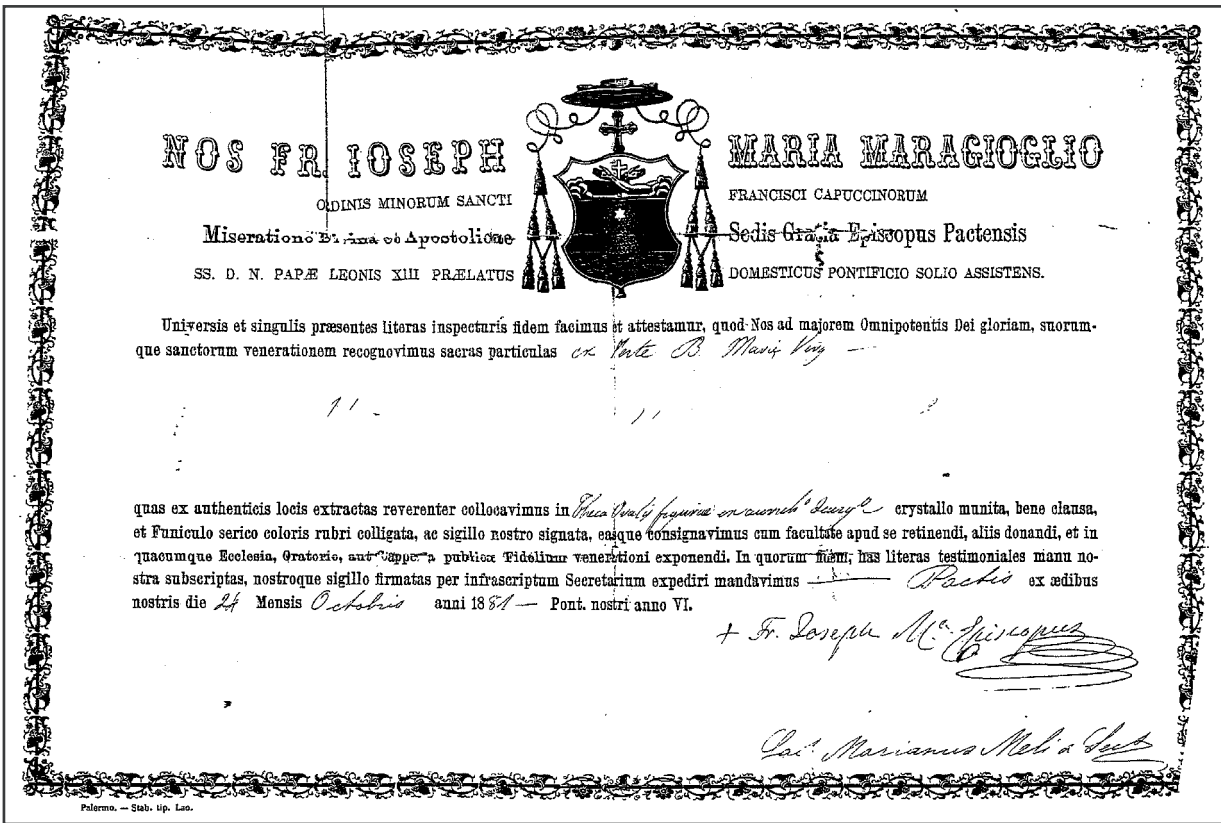 NOS FR. IOSEPH MARIA MARAGIOGLIO
ORDINIS MINORUM SANCTI FRANCISCI CAPUCCINORUM
Miseratione Divina et Apostolicae Sedis Gratia Episcopus Pactensis
SS. D. N. PAPÆ LEONIS XIII PRÆLATUS DOMESTICUS PONTIFICIO SOLIO ASSISTENS.
Universis et singulis præsentes literas inspecturis fidem facimus et attestamur, quod Nos ad majorem Omnipotentis Dei gloriam, suorum-
que sanctorum venerationem recognovimus sacras particulas ex Veste B. Mariæ Virg —
quas ex authenticis locis extractas reverenter collocavimus in Theca Ovalis figuræ crystallo munita, bene clausa,
et Funiculo serico coloris rubri colligata, ac sigillo nostro signata, easque consignavimus cum facultate apud se retinendi, aliis donandi, et in
quacumque Ecclesia, Oratorio, aut Cappella publicæ Fidelium venerationi exponendi. In quorum fidem, has literas testimoniales manu no-
stra subscriptas, nostroque sigillo firmatas per infrascriptum Secretarium expediri mandavimus — Pactis ex ædibus
nostris die 24 Mensis Octobris anni 1881 — Pont. nostri anno VI.
+ Fr. Joseph M.a Episcopus
Sac. Marianus Meli a Secr
Palermo. — Stab. tip. Lao.